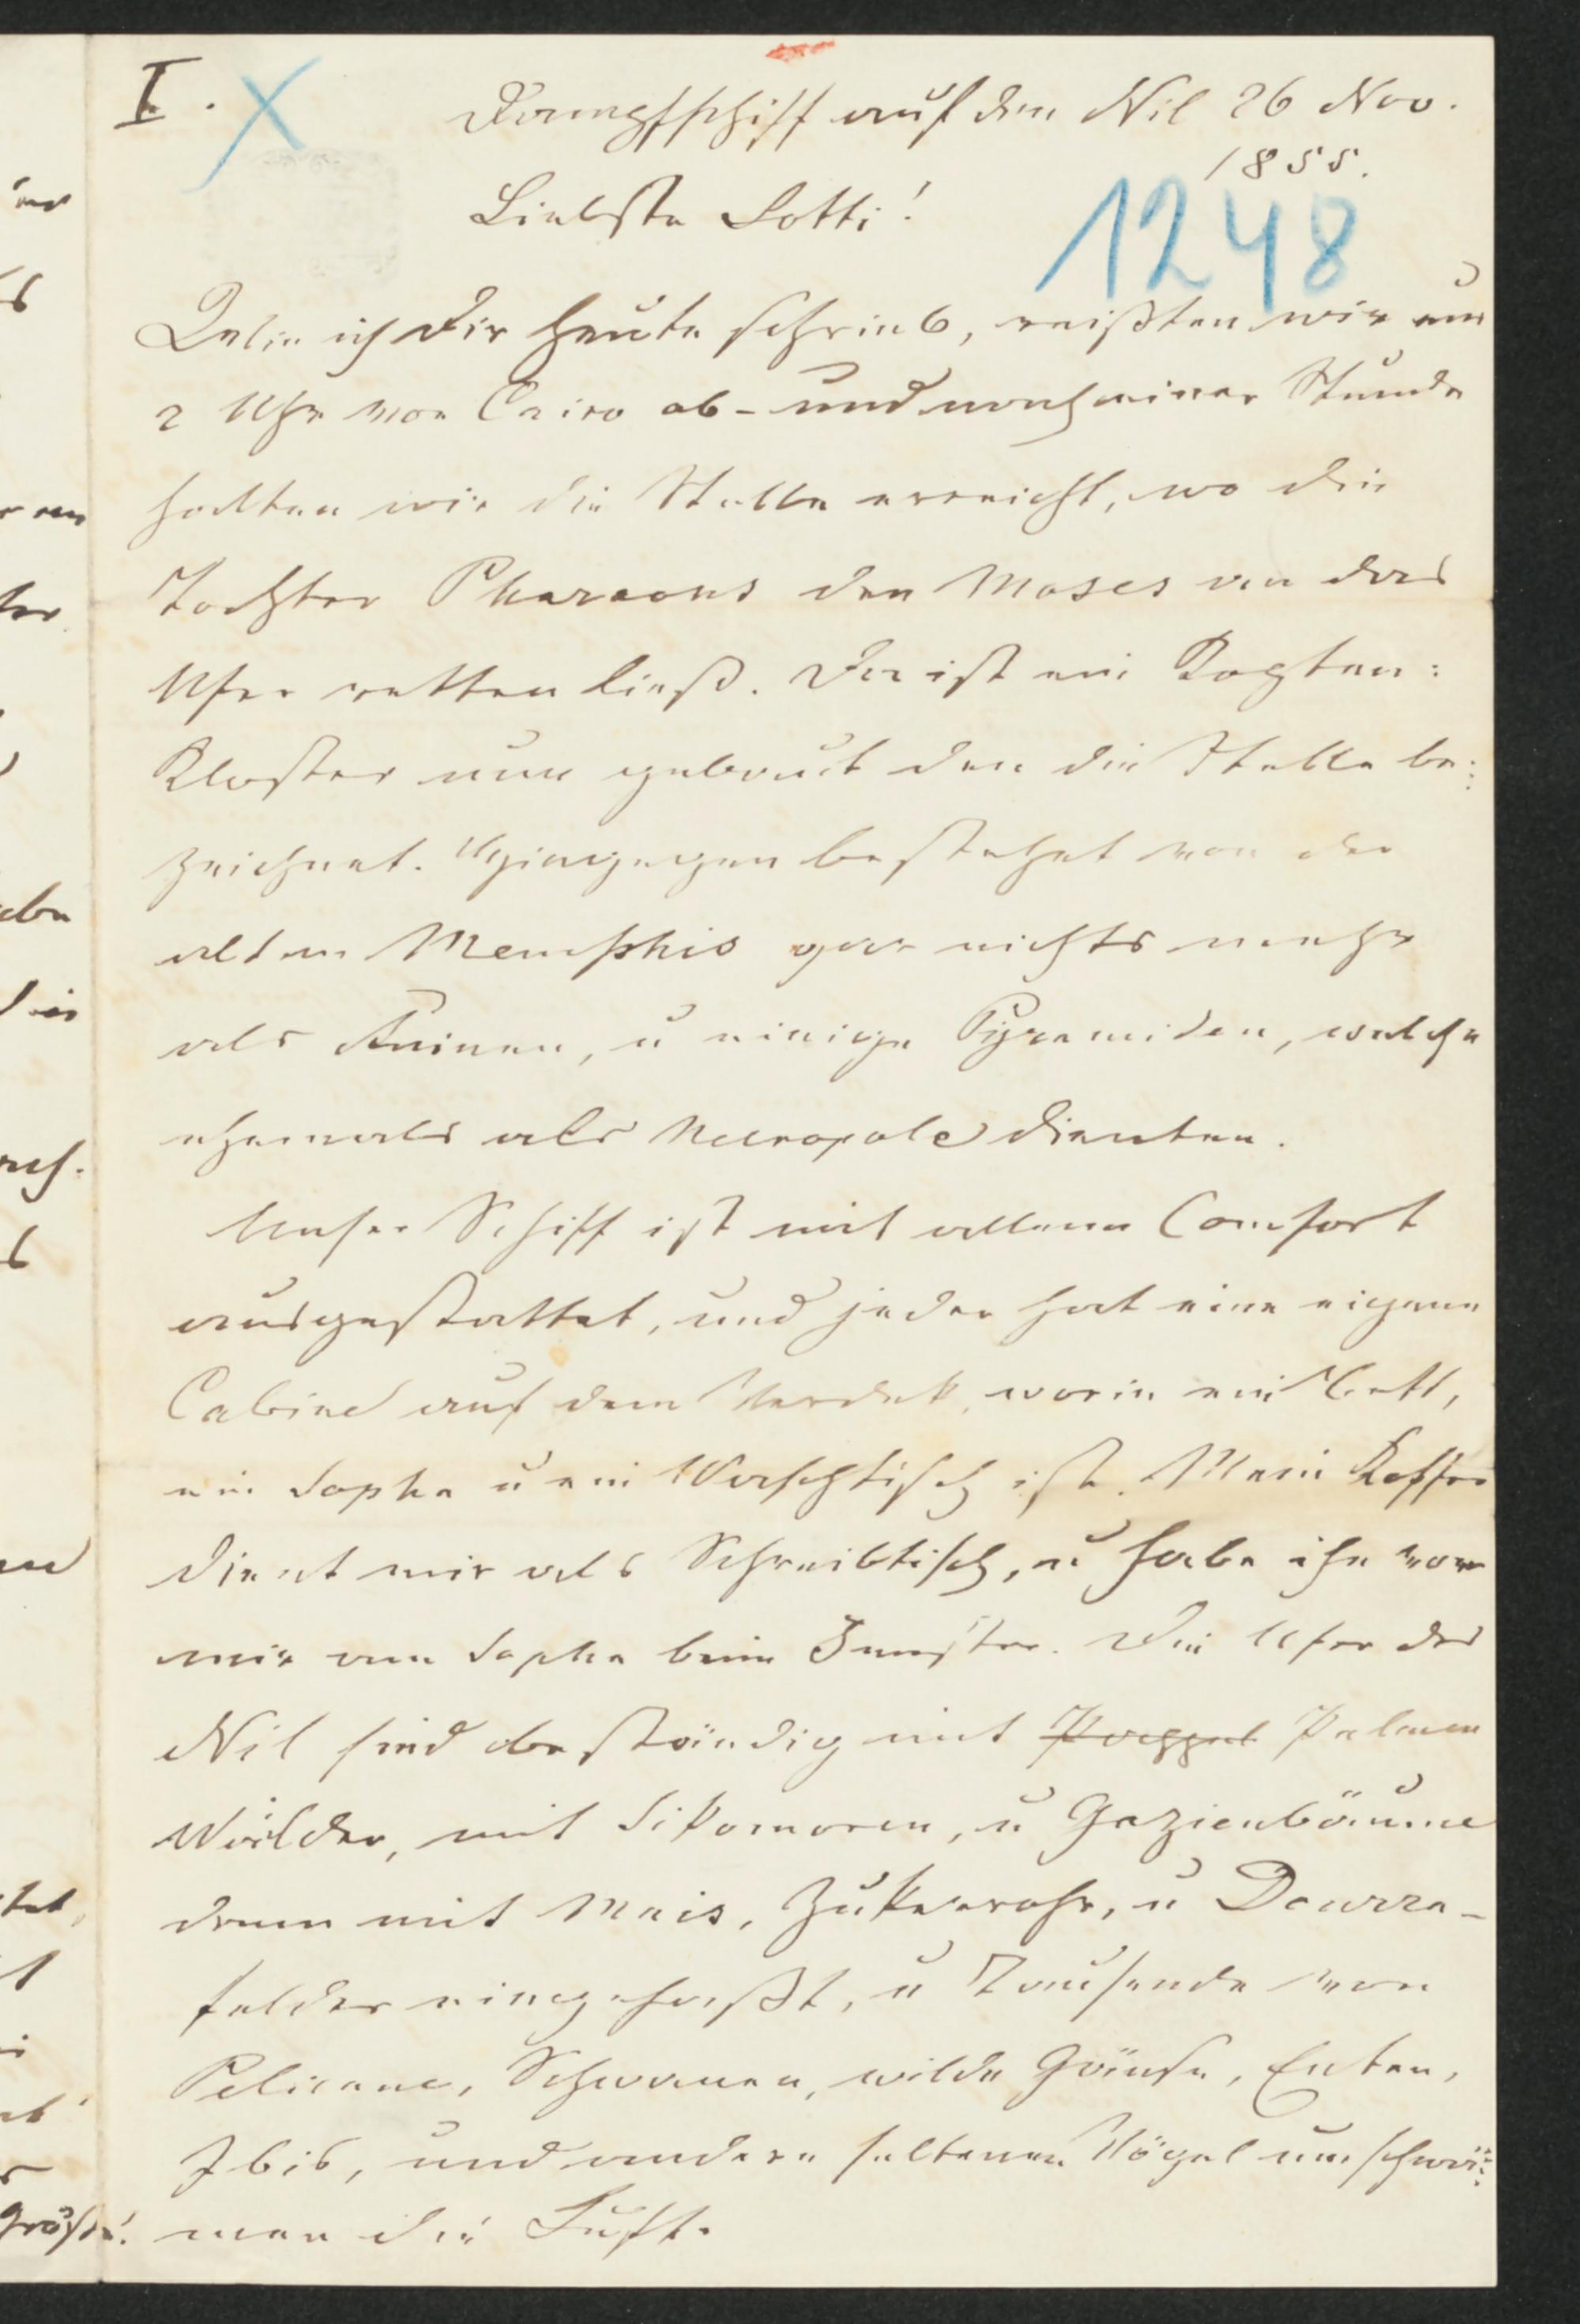 I.
Dampfschiff auf den Nil 26 Nov.
1855.
Liebste Lotti!
1248
ich Dir heute schrieb, reißten wir um
2 Uhr von Cairo ab - und nach einer Stunde
hatten wir die Stelle erreicht, wo die
Tochter Pharaons den Moses an das
Ufer retten ließ. Da ist ein Kopten:
Kloster nun gebaut den die Stelle be:
zeichnet. Hingegen bestehet von der
alten Memphis gar nichts mehr
als Ruinen, u einige Pyramiden, welche
ehemals als Necropole dienten.
Unser Schiff ist mit allem Comfort
ausgestattet, und jeder hat eine eigene
Cabine auf dem Verdek, worin ein Bett,
ein Sopha u ein Waschtisch ist. Mein Koffer
dient mir als Schreibtisch, u habe ihn vor
mir am Sopha beim Fenster. Die Ufer des
Nil sind beständig mit Palmen
Wälder, mit Sikomoren, u Gazienbäume
dann mit Mais, Zukerrohr, u Dourra-
felder eingefaßt, u Tausende von
Pelicane, Schwanen, wilde Gänse, Enten,
Ibis, und andere seltenen Vögel umschwär:
men die Luft.